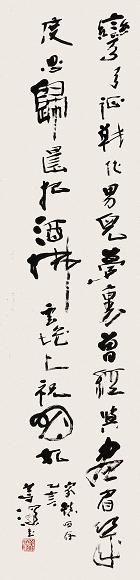 彎弓征戰作男兒夢裏曾經與畫眉幾
度思歸還把酒拂雲堆上祝明妃